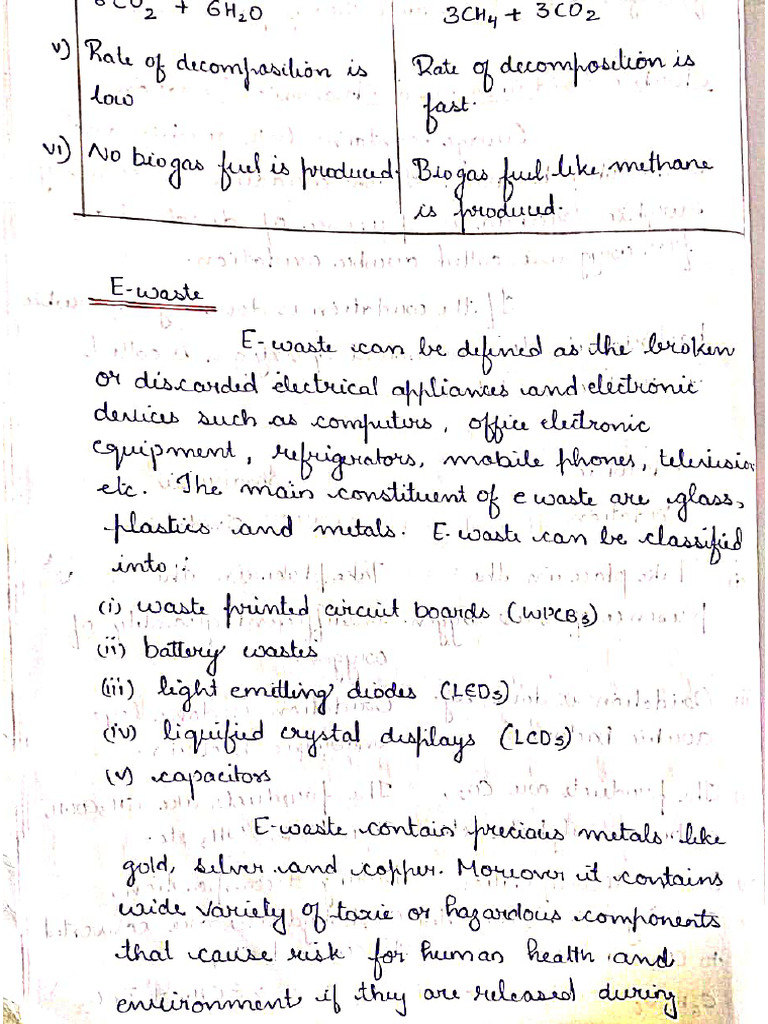 6CO2 + 6H2O
3CH4 + 3CO2
v) Rate of decomposition is low
Rate of decomposition is fast.
vi) No biogas fuel is produced.
Biogas fuel like methane is produced.
E-waste
E-waste can be defined as the broken
or discarded electrical appliances and electronic
devices such as computers, office electronic
equipment, refrigerators, mobile phones, television
etc. The main constituent of e waste are glass,
plastics and metals. E-waste can be classified
into:
(i) waste printed circuit boards (WPCBs)
(ii) battery wastes
(iii) light emitting diodes (LEDs)
(iv) liquified crystal displays (LCDs)
(v) capacitors
E-waste contain precious metals like
gold, silver and copper. Moreover it contains
wide variety of toxic or hazardous components
that cause risk for human health and
environment if they are released during